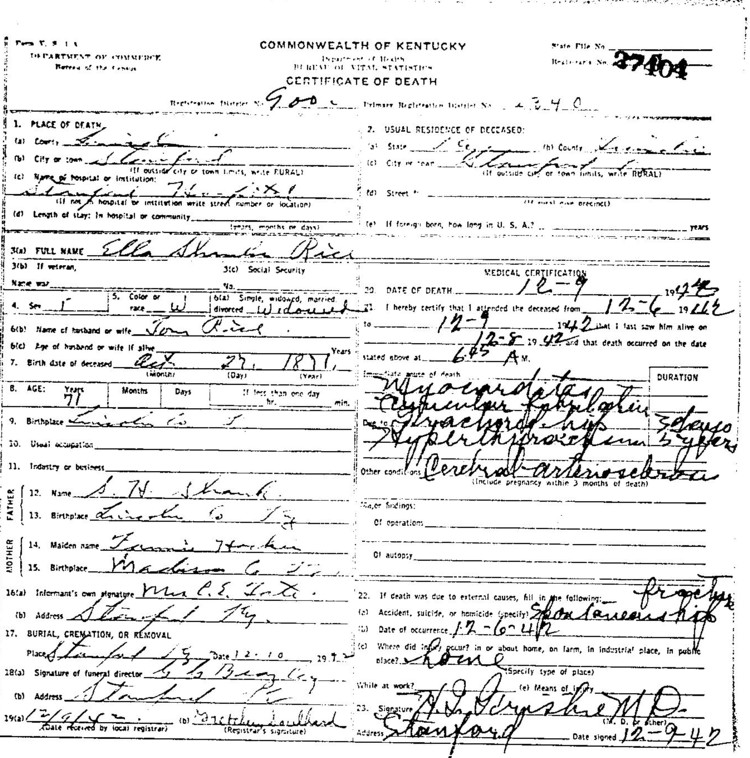 Form V. S. 1-A
DEPARTMENT OF COMMERCE
Bureau of the Census
COMMONWEALTH OF KENTUCKY
Department of Health
BUREAU OF VITAL STATISTICS
CERTIFICATE OF DEATH
State File No.
Registrar's No. 27404
Registration District No. 900 Primary Registration District No. 2340
1. PLACE OF DEATH
(a) County Lincoln
(b) City or town Stanford
(If outside city or town limits, write RURAL)
(c) Name of hospital or institution:
Stanford Hospital
(If not in hospital or institution write street number or location)
(d) Length of stay: In hospital or community
(years, months or days)
2. USUAL RESIDENCE OF DECEASED:
(a) State Ky (b) County Lincoln
(c) City or town Stanford
(If outside city or town limits, write RURAL)
(d) Street
(If rural give precinct)
(e) If foreign born, how long in U. S. A.? years
3(a) FULL NAME Ella Shanks Rice
3(b) If veteran,
Name war
3(c) Social Security
No.
4. Sex F
5. Color or race W
6(a) Single, widowed, married
divorced Widowed
6(b) Name of husband or wife Tom Rice
6(c) Age of husband or wife if alive Years
7. Birth date of deceased Oct 27, 1871
(Month) (Day) (Year)
8. AGE: Years Months Days If less than one day
71 hr. min.
9. Birthplace Lincoln Co
10. Usual occupation
11. Industry or business
FATHER
12. Name S. H. Shanks
13. Birthplace Lincoln Co Ky
MOTHER
14. Maiden name Hocker
15. Birthplace Madison Co
16(a) Informant's own signature Mrs C. E. Tate
(b) Address Stanford Ky
17. BURIAL, CREMATION, OR REMOVAL
Place Stanford Ky Date 12-10 1942
18(a) Signature of funeral director
(b) Address Stanford Ky
19(a) 12/9/42 (b) Gretchen
(Date received by local registrar) (Registrar's signature)
MEDICAL CERTIFICATION
20. DATE OF DEATH 12-9 1942
21. I hereby certify that I attended the deceased from 12-6 1942
to 12-9 1942 that I last saw him alive on
12-8 1942 and that death occurred on the date
stated above at 6:45 A M.
Immediate cause of death
DURATION
Myocarditis
Auricular fibrillation
Due to Fractured hip 3 days
Hyperthyroidism 5 years
Other conditions Cerebral arteriosclerosis
(Include pregnancy within 3 months of death)
Major findings:
Of operations
Of autopsy
22. If death was due to external causes, fill in the following: fracture
(a) Accident, suicide, or homicide (specify) Spontaneous hip
(b) Date of occurrence 12-6-42
(c) Where did injury occur? in or about home, on farm, in industrial place, in public
place? home
(Specify type of place)
While at work? (e) Means of injury
23. Signature M. D.
(M. D. or other)
Address Stanford Date signed 12-9-42